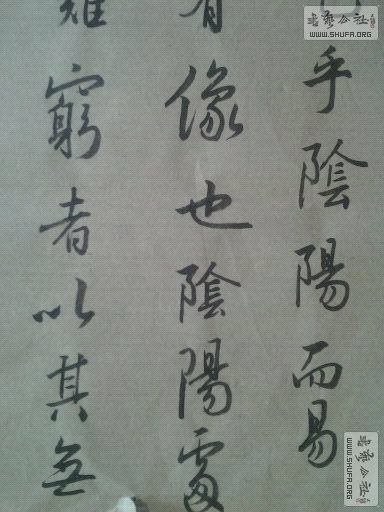 乎陰陽而易
有像也陰陽處
難窮者以其無
書法公社
WWW.SHUFA.ORG
書法公社
WWW.SHUFA.ORG